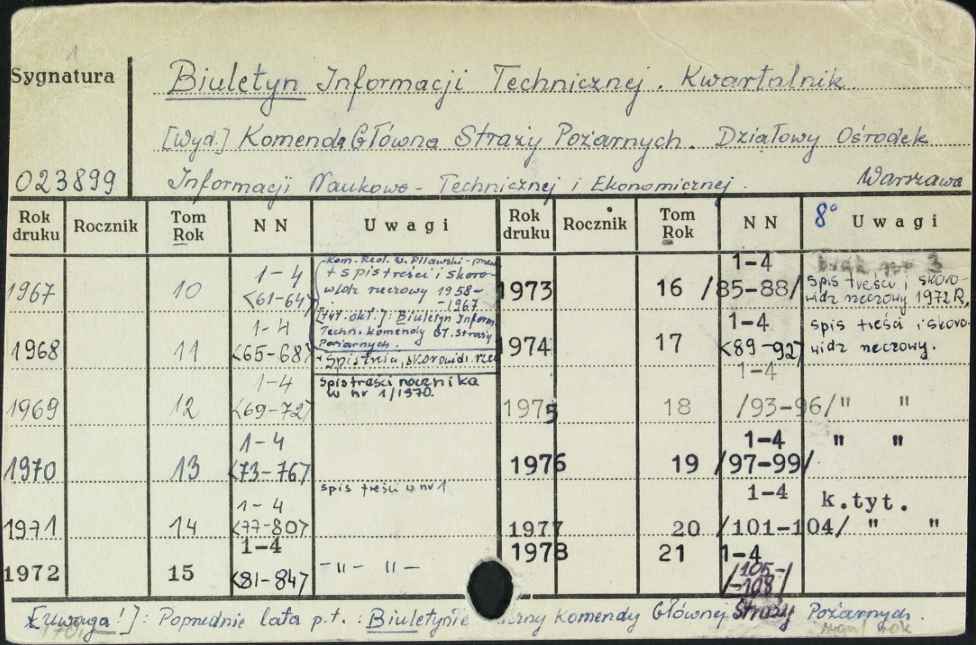 Sygnatura
Biuletyn Informacji Technicznej. Kwartalnik
[Wyd.] Komenda Główna Straży Pożarnych. Działowy Ośrodek
023899 Informacji Naukowo-Technicznej i Ekonomicznej. Warszawa
Rok druku Rocznik Tom Rok NN Uwagi Rok druku Rocznik Tom Rok NN 8° Uwagi
1967 10 1-4 <61-64>
+ spis treści i skoro-
widz rzeczowy 1958-
-1967
[tyt. okł.]: Biuletyn Inform.
Techn. Komendy Gł. Straży
Pożarnych.
1968 11 1-4 <65-68>
1969 12 1-4 <69-72> spis treści rocznika
w nr 1/1970.
1970 13 1-4 <73-76>
1971 14 1-4 <77-80> spis treści w nr 1
1972 15 1-4 <81-84> -"- "-
1973 16 1-4 /85-88/ spis treści i skoro-
widz rzeczowy 1972 R,
1974 17 1-4 <89-92> spis treści i skoro-
widz rzeczowy.
1975 18 1-4 /93-96/ " "
1976 19 1-4 /97-99/ " "
1977 20 1-4 /101-104/ k.tyt. " "
1978 21 1-4 /105-
-108/
[Uwaga!]: Poprzednie lata p.t.: Biuletyn Komendy Głównej Straży Pożarnych.